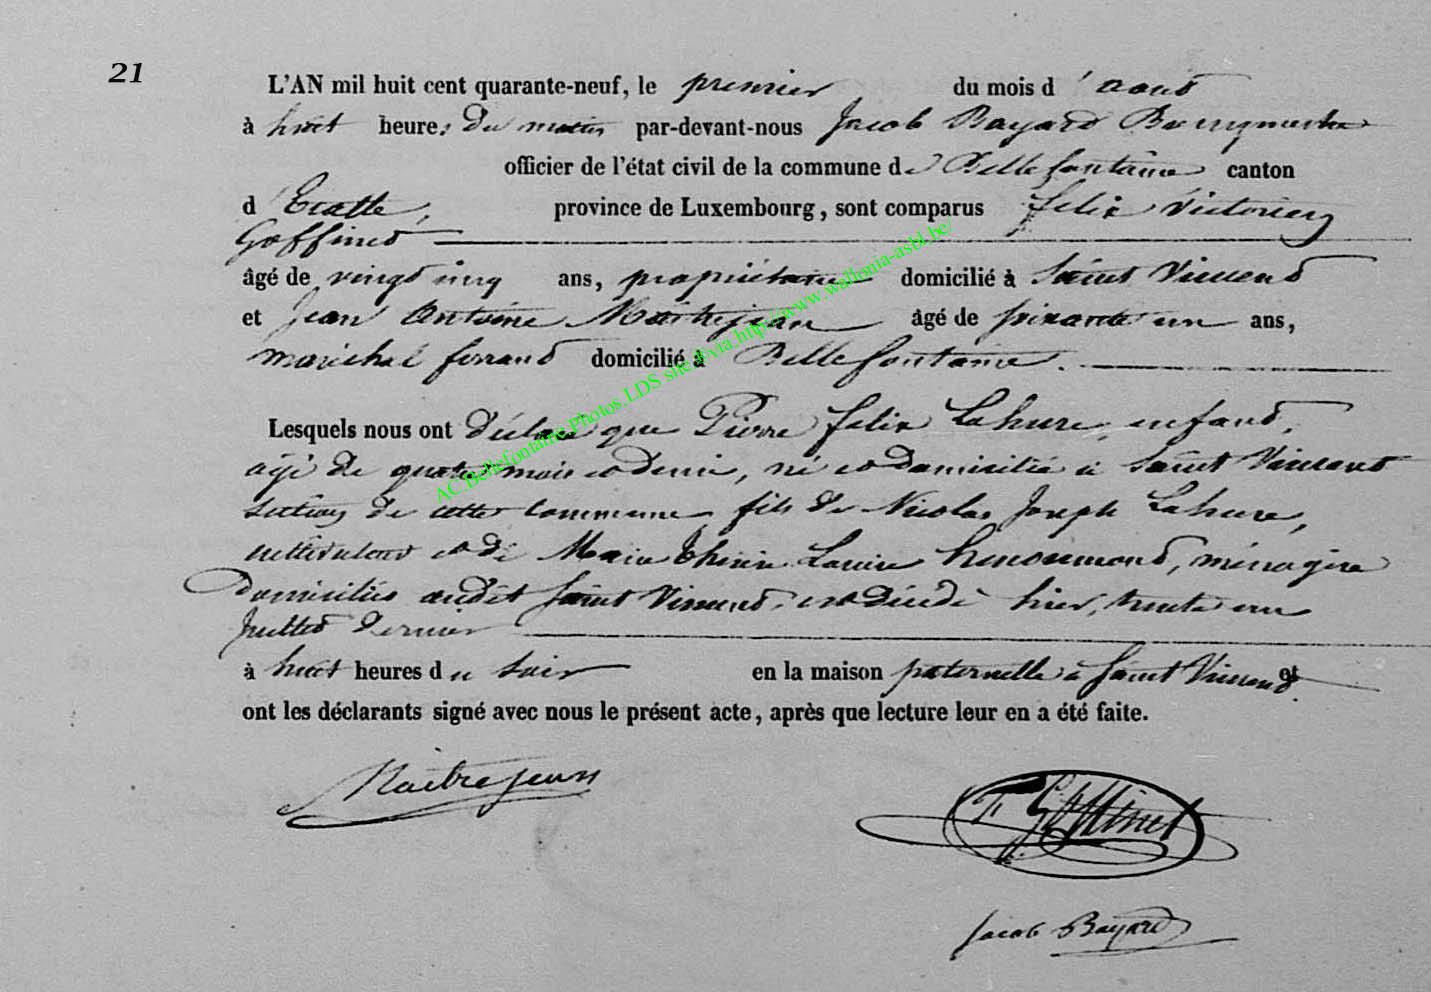 21
L'AN mil huit cent quarante-neuf, le premier du mois d'aout
à huit heures du matin par-devant-nous Jacob Bayard Bourgmestre
officier de l'état civil de la commune de Bellefontaine canton
d'Etalle, province de Luxembourg, sont comparus Felix Victorien
Goffinet
âgé de vingt cinq ans, propriétaire domicilié à Saint Vincent
et Jean Antoine Maitrejean âgé de soixante un ans,
maréchal ferrant domicilié à Bellefontaine.
Lesquels nous ont déclaré que Pierre Felix Lahure, enfant,
agé de quatre mois et demi, né et domicilié à Saint Vincent
section de cette commune, fils de Nicolas Joseph Lahure,
cultivateur et de Marie Louise ménagère
domiciliés audit Saint Vincent, est décédé hier, trente un
juillet dernier
à huit heures du soir en la maison paternelle à Saint Vincent et
ont les déclarants signé avec nous le présent acte, après que lecture leur en a été faite.
Maitrejean
F Goffinet
Jacob Bayard
AC.Bellefontaine.Photos.LDS via http://www.wallonia-asbl.be/